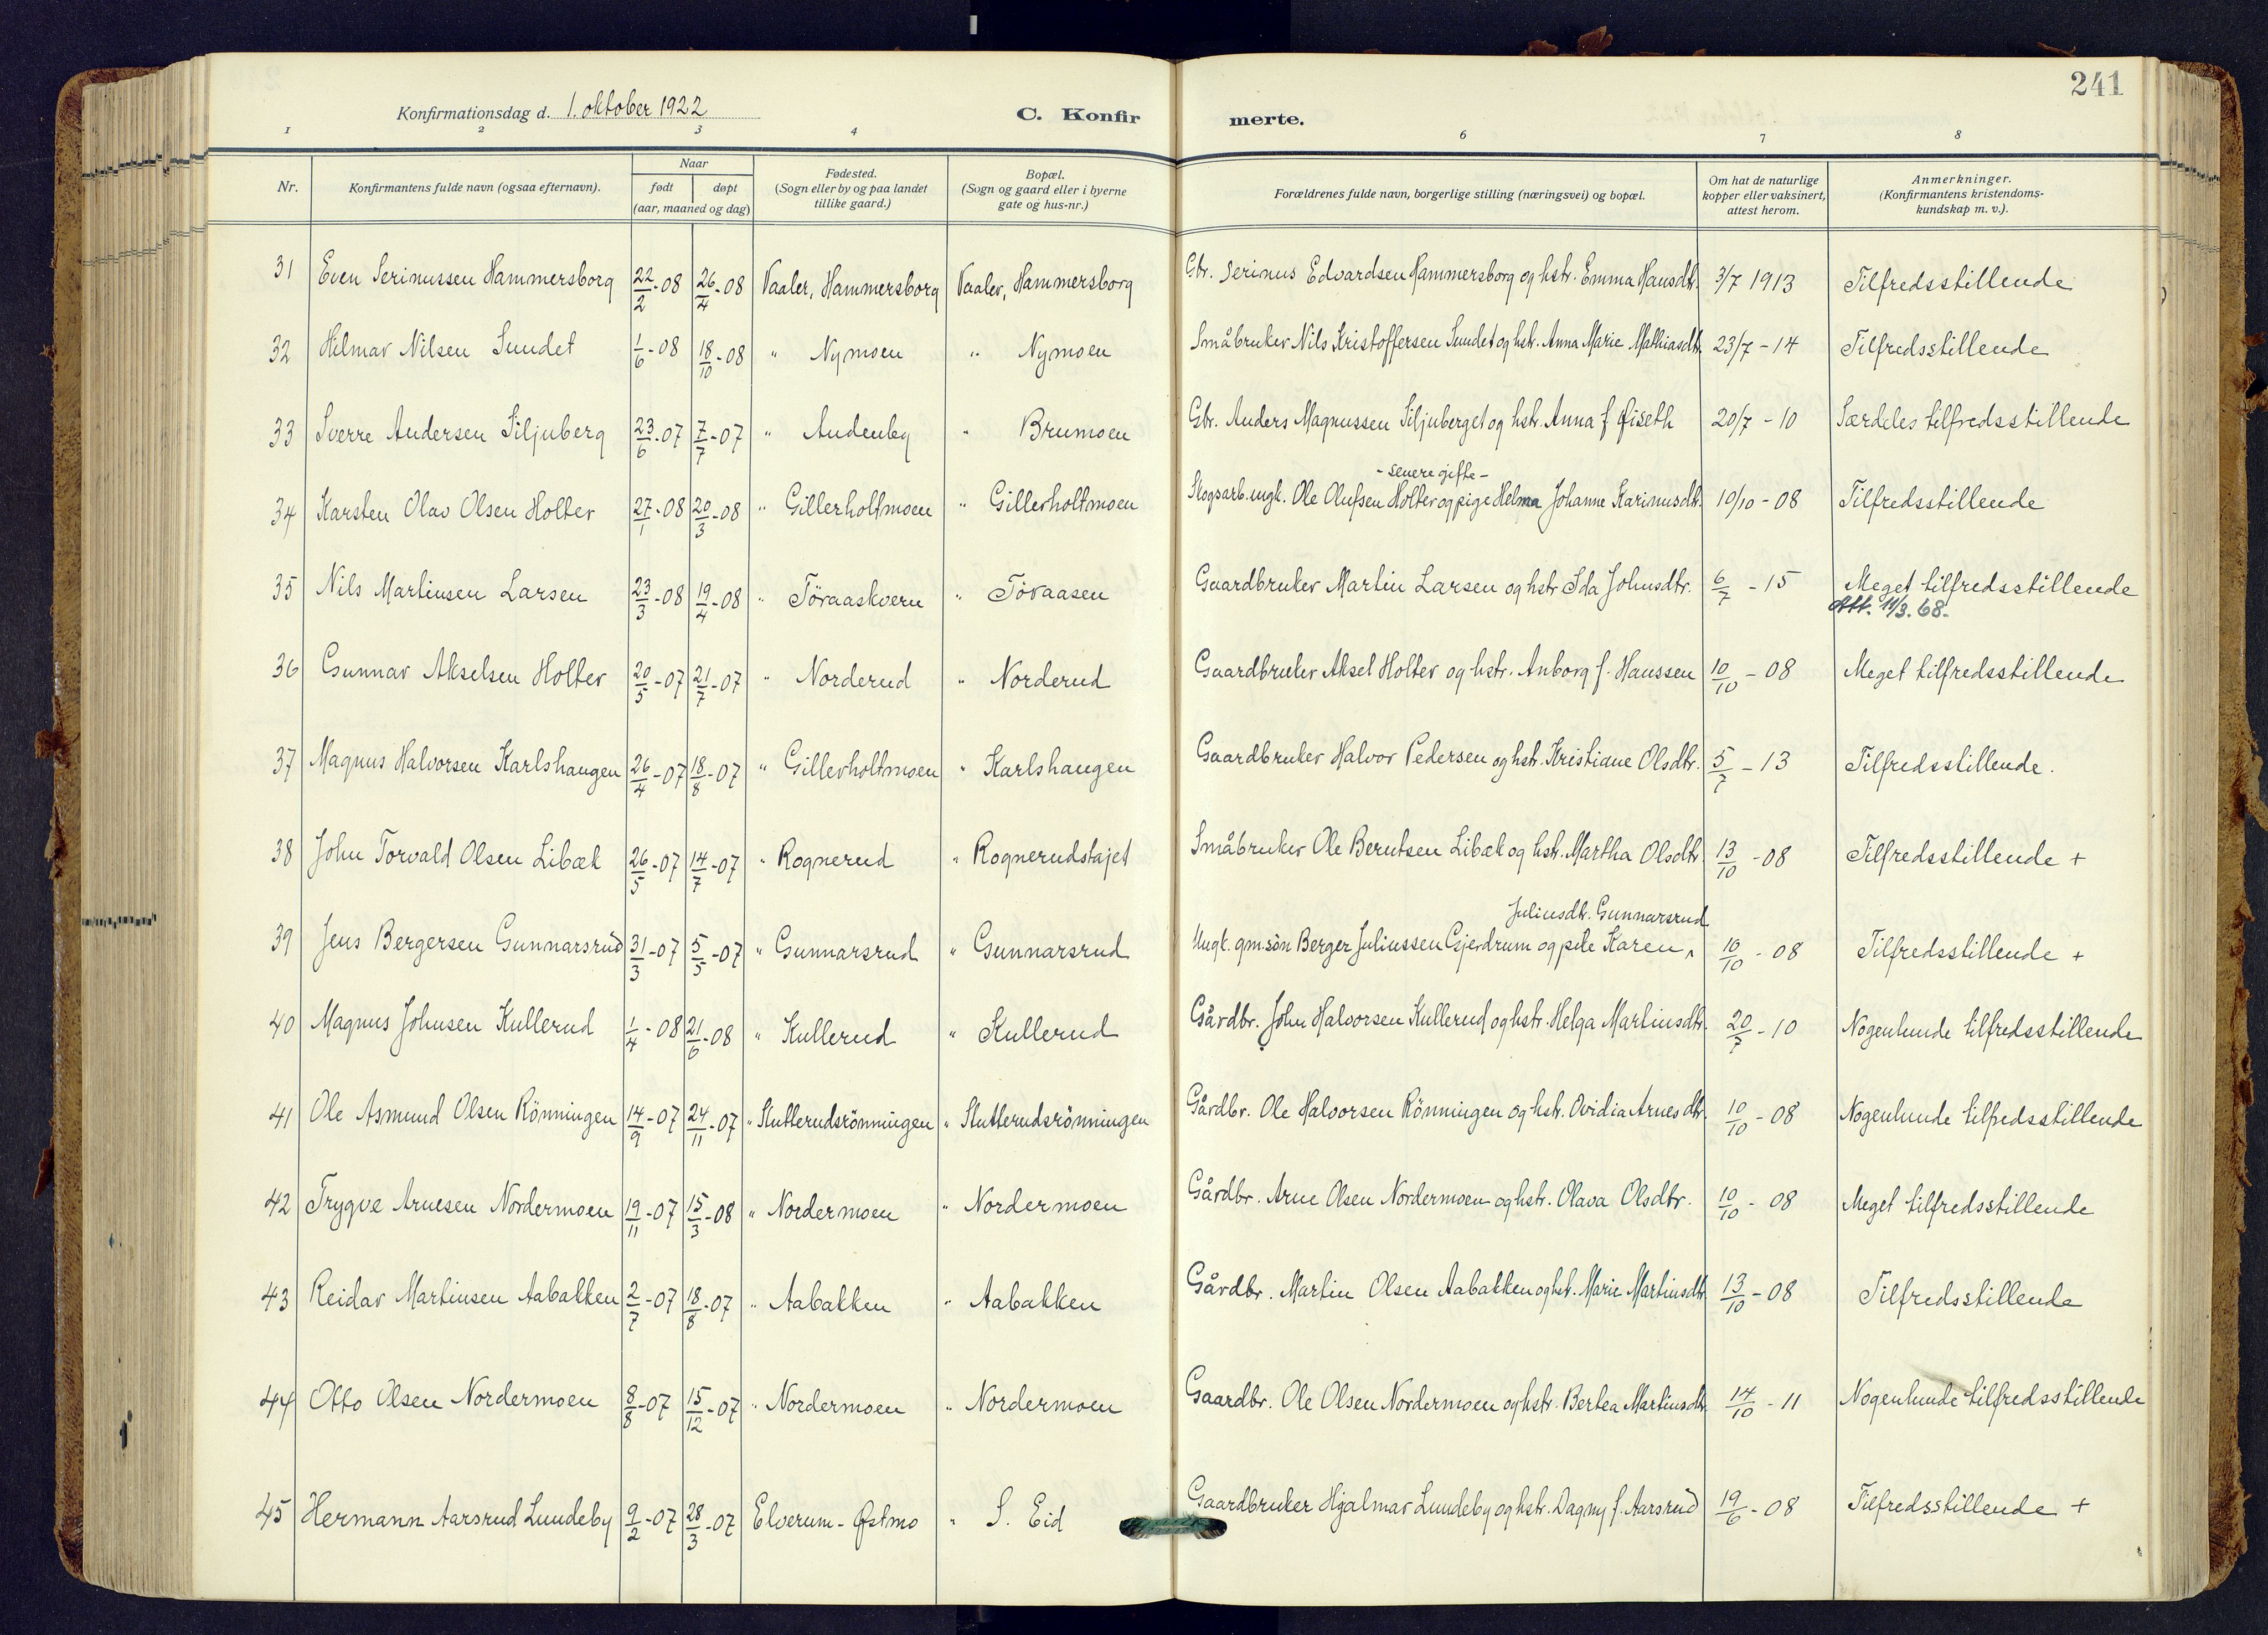 241
Konfirmationsdag d. 1. oktober 1922
C. Konfirmerte.
1 2 3 4 6 7 8
Nr. | Konfirmantens fulde navn (ogsaa efternavn). | Naar født døpt (aar, maaned og dag) | Fødested. (Sogn eller by og paa landet tillike gaard.) | Bopæl. (Sogn og gaard eller i byerne gate og hus-nr.) | Forældrenes fulde navn, borgerlige stilling (næringsvei) og bopæl. | Om hat de naturlige kopper eller vaksinert, attest herom. | Anmerkninger. (Konfirmantens kristendoms-kundskap m. v.).
31 Even Serinussen Hammersborg 22/2-08 26/4-08 Vaaler, Hammersborg Vaaler, Hammersborg Gbr. Serinus Edvardsen Hammersborg og hstr. Emma Hansdtr. 3/7 1913 Tilfredsstillende
32 Hilmar Nilsen Sundet 1/6-08 18/10-08 " Nymoen " Nymoen Småbruker Nils Kristoffersen Sundet og hstr. Anna Marie Mathiasdtr. 23/7-14 Tilfredsstillende
33 Sverre Andersen Siljuberg 23/6-07 7/7-07 " Audenby " Brumoen Gbr. Anders Magnussen Siljuberget og hstr. Anna f. Øiseth 20/7-10 Særdeles tilfredsstillende
- senere gifte -
34 Karsten Olav Olsen Holter 27/1-08 20/3-08 " Gillerholtmoen " Gillerholtmoen Skogsarb. ungk. Ole Olufsen Holter og pige Helma Johanne Karinusdtr. 10/10-08 Tilfredsstillende
35 Nils Martinsen Larsen 23/3-08 19/4-08 " Töraaskvern " Töraasen Gaardbruker Martin Larsen og hstr Ida Johnsdtr. 6/7-15 Meget tilfredsstillende
Att. 11/3.68.
36 Gunnar Akselsen Holter 20/5-07 21/7-07 " Norderud " Norderud Gaardbruker Aksel Holter og hstr. Anborg f. Hanssen 10/10-08 Meget tilfredsstillende
37 Magnus Halvorsen Karlshaugen 26/4-07 18/8-07 " Gillerholtmoen " Karlshaugen Gaardbruker Halvor Pedersen og hstr. Kristiane Olsdtr. 5/7-13 Tilfredsstillende.
38 John Torvald Olsen Libæk 26/5-07 14/7-07 " Rognerud " Rognerudstajet Småbruker Ole Berntsen Libæk og hstr. Martha Olsdtr 13/10-08 Tilfredsstillende +
Juliusdtr. Gunnarsrud
39 Jens Bergersen Gunnarsrud 31/3-07 5/5-07 " Gunnarsrud " Gunnarsrud Ungk. gm.sön Berger Juliussen Gjerdrum og pike Karen ^ 10/10-08 Tilfredsstillende +
40 Magnus Johnsen Kullerud 1/4-08 21/6-08 " Kullerud " Kullerud Gårdbr. John Halvorsen Kullerud og hstr. Helga Martinsdtr. 20/7-10 Nogenlunde tilfredsstillende
41 Ole Asmund Olsen Rönningen 14/9-07 24/11-07 " Slutterudsrönningen " Slutterudsrönningen Gårdbr. Ole Halvorsen Rönningen og hstr. Ovidia Arnesdtr. 10/10-08 Nogenlunde tilfredsstillende
42 Trygve Arnesen Nordermoen 19/11-07 15/3-08 " Nordermoen " Nordermoen Gårdbr. Arne Olsen Nordermoen og hstr. Olava Olsdtr. 10/10-08 Meget tilfredsstillende
43 Reidar Martinsen Aabakken 2/7-07 18/8-07 " Aabakken " Aabakken Gårdbr. Martin Olsen Aabakken og hst. Marie Martinsdtr 13/10-08 Tilfredsstillende
44 Otto Olsen Nordermoen 8/8-07 15/12-07 " Nordermoen " Nordermoen Gaardbr. Ole Olsen Nordermoen og hstr. Bertea Martinsdtr. 14/10-11 Nogenlunde tilfredsstillende
45 Hermann Aarsrud Lundeby 9/2-07 28/3-07 Elverum - Østmo " S. Eid Gaardbruker Hjalmar Lundeby og hstr. Dagny f. Aarsrud 19/6-08 Tilfredsstillende +